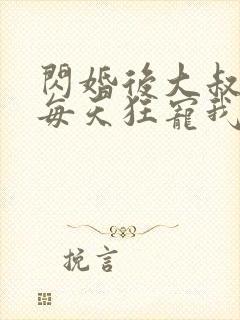 閃婚後大叔
每天狂寵我
挽言